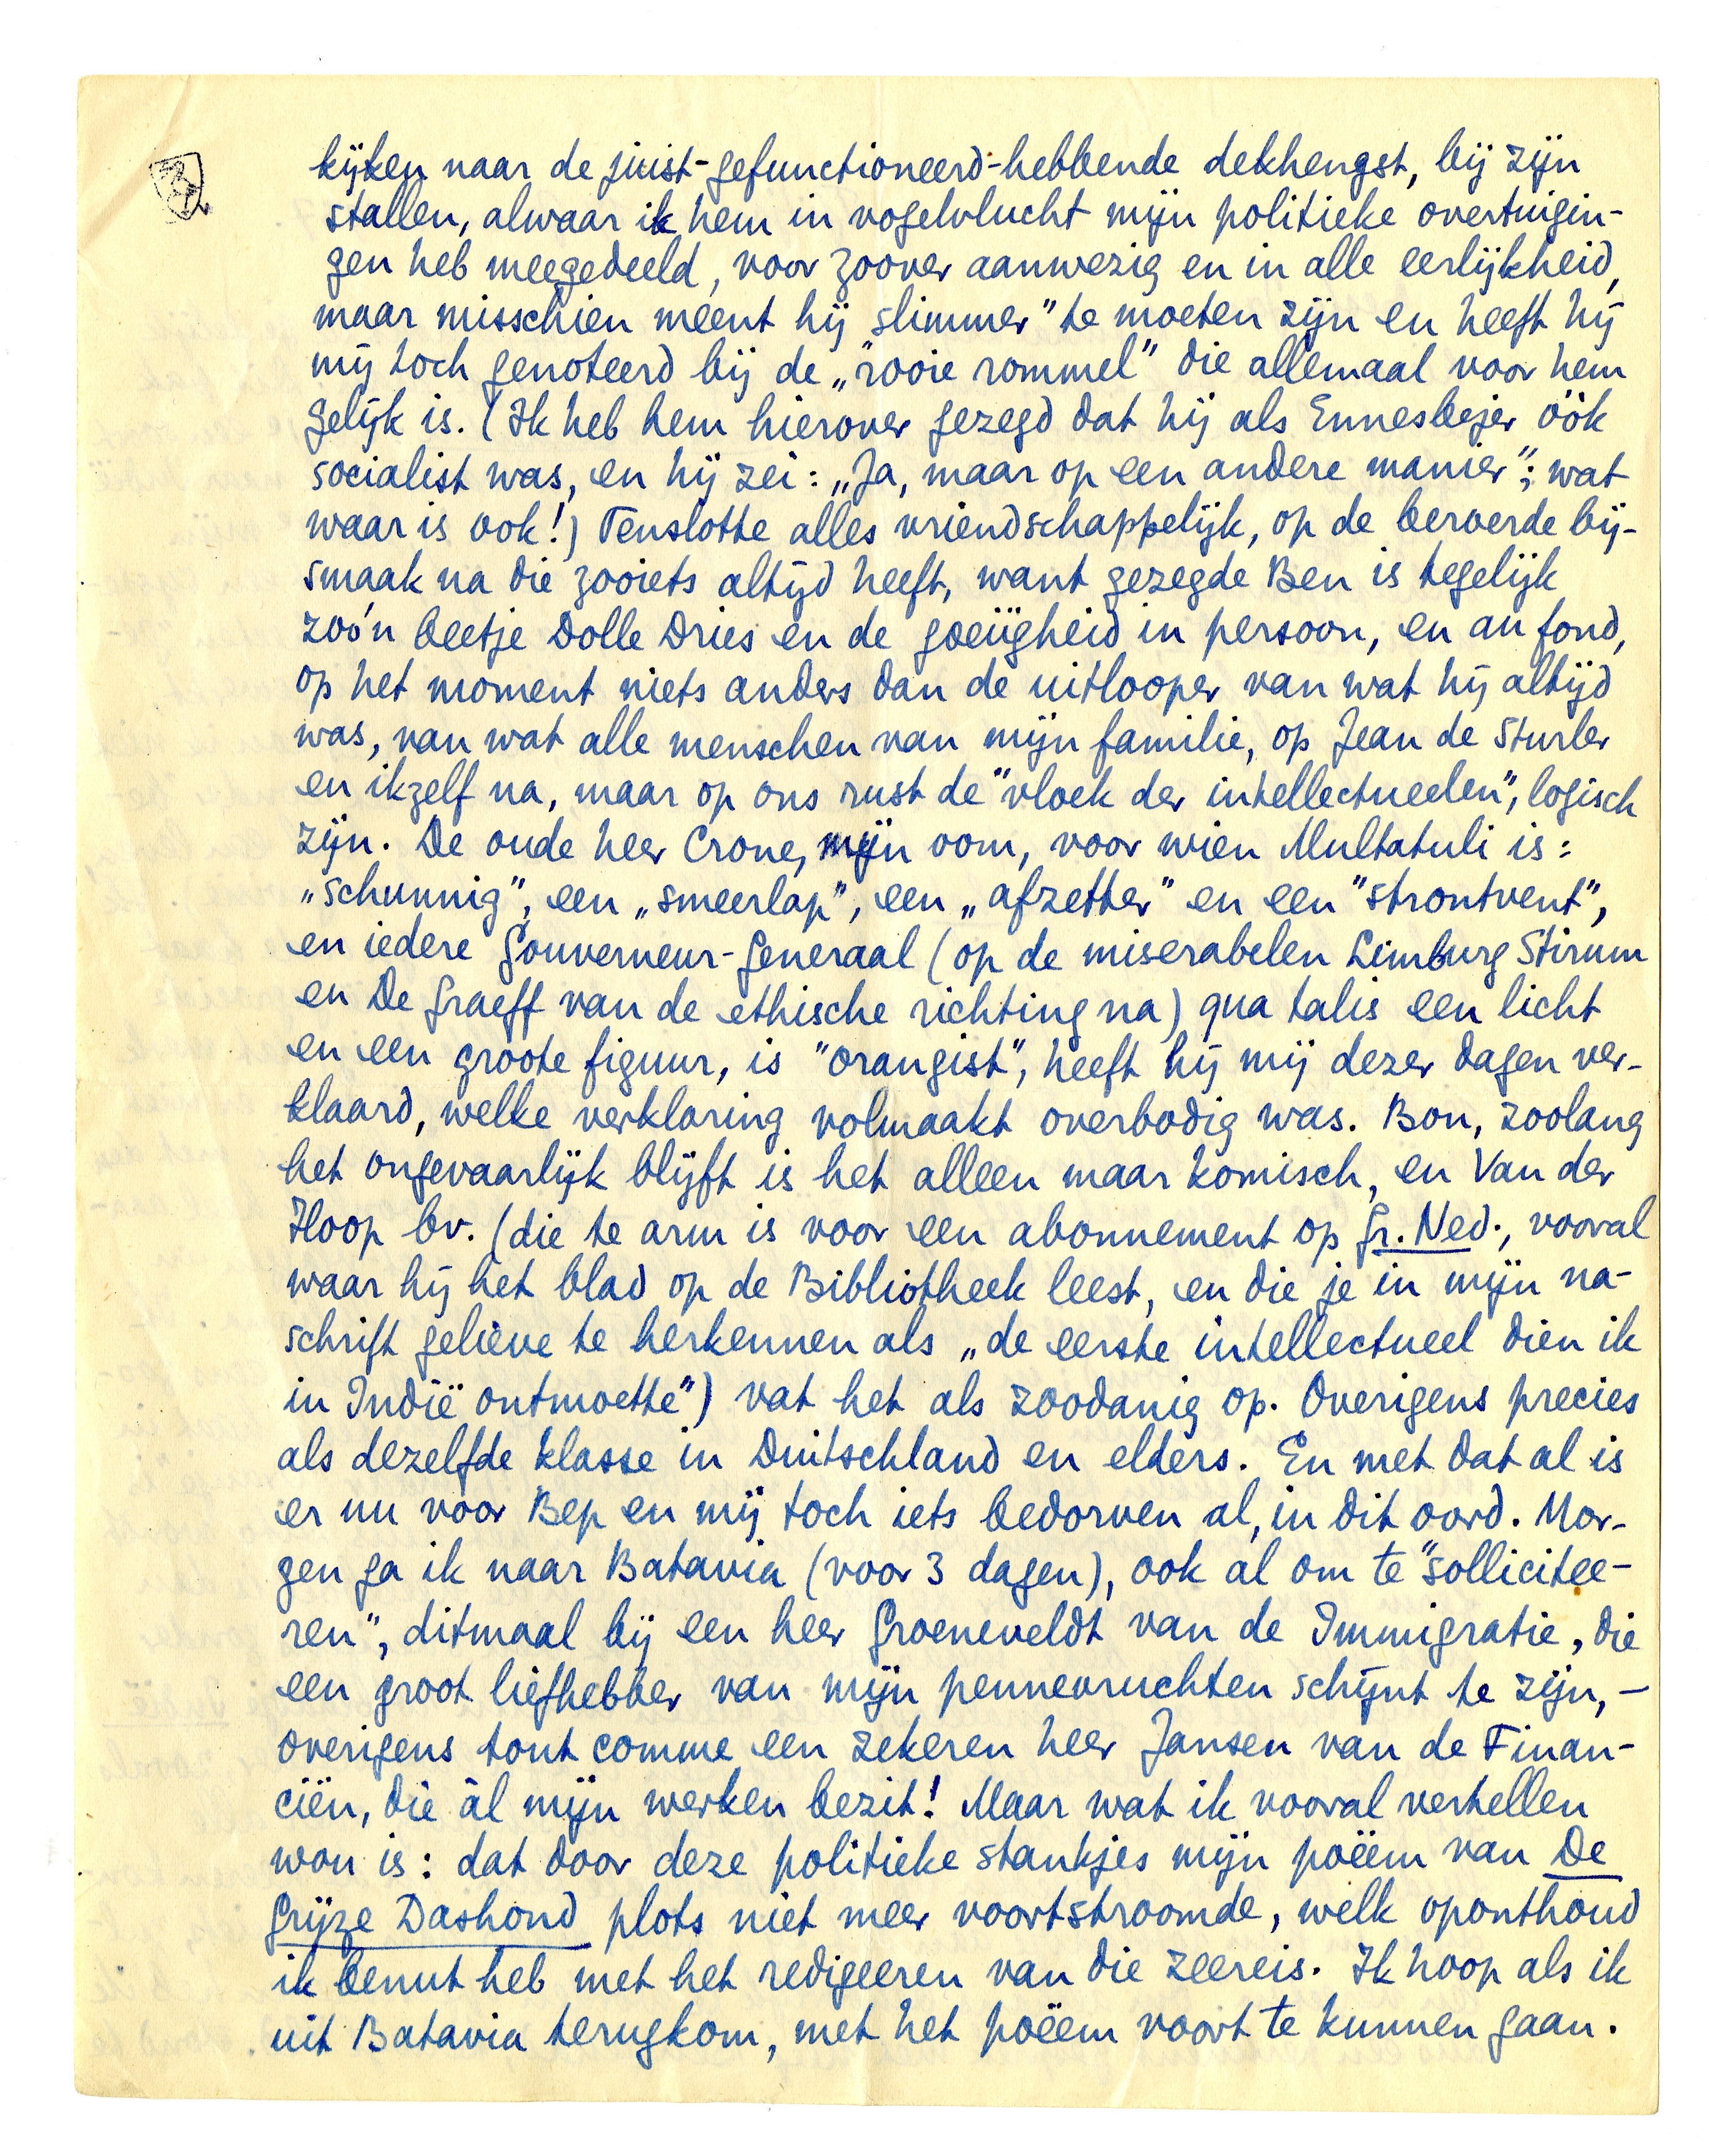 kijken naar de juist-gefunctioneerd-hebbende dekhengst, bij zijn
stallen, alwaar ik hem in vogelvlucht mijn politieke overtuigin-
gen heb meegedeeld, voor zoover aanwezig en in alle eerlijkheid,
maar misschien meent hij slimmer" te moeten zijn en heeft hij
mij toch genoteerd bij de „rooie rommel" die allemaal voor hem
gelijk is. (Ik heb hem hierover gezegd dat hij als Ennesbejer óók
socialist was, en hij zei: „Ja, maar op een andere manier"; wat
waar is ook!) Tenslotte alles vriendschappelijk, op de beroerde bij-
smaak na die zooiets altijd heeft, want gezegde Ben is tegelijk
zoo'n beetje Dolle Dries en de goeiigheid in persoon, en au fond,
op het moment niets anders dan de uitlooper van wat hij altijd
was, van wat alle menschen van mijn familie, op Jean de Sturler
en ikzelf na, maar op ons rust de "vloek der intellectueelen", logisch
zijn. De oude heer Crone, mijn oom, voor wien Multatuli is:
„schunnig", een „smeerlap", een „afzetter" en een "strontvent",
en iedere Gouverneur-Generaal (op de miserabelen Limburg Stirum
en De Graeff van de ethische richting na) qua talis een licht
en een groote figuur, is "orangist", heeft hij mij dezer dagen ver-
klaard, welke verklaring volmaakt overbodig was. Bon, zoolang
het ongevaarlijk blijft is het alleen maar komisch, en Van der
Hoop bv. (die te arm is voor een abonnement op Gr. Ned., vooral
waar hij het blad op de Bibliotheek leest, en die je in mijn na-
schrift gelieve te herkennen als „de eerste intellectueel dien ik
in Indië ontmoette") vat het als zoodanig op. Overigens precies
als dezelfde klasse in Duitschland en elders. En met dat al is
er nu voor Bep en mij toch iets bedorven al, in dit oord. Mor-
gen ga ik naar Batavia (voor 3 dagen), ook al om te "sollicitee-
ren", ditmaal bij een heer Groeneveldt van de Immigratie, die
een groot liefhebber van mijn pennevruchten schijnt te zijn, –
overigens tout comme een zekeren heer Jansen van de Finan-
ciën, die àl mijn werken bezit! Maar wat ik vooral vertellen
wou is: dat door deze politieke stankjes mijn poëem van De
Grijze Dashond plots niet meer voortstroomde, welk oponthoud
ik benut heb met het redigeeren van die zeereis. Ik hoop als ik
uit Batavia terugkom, met het poëem voort te kunnen gaan.